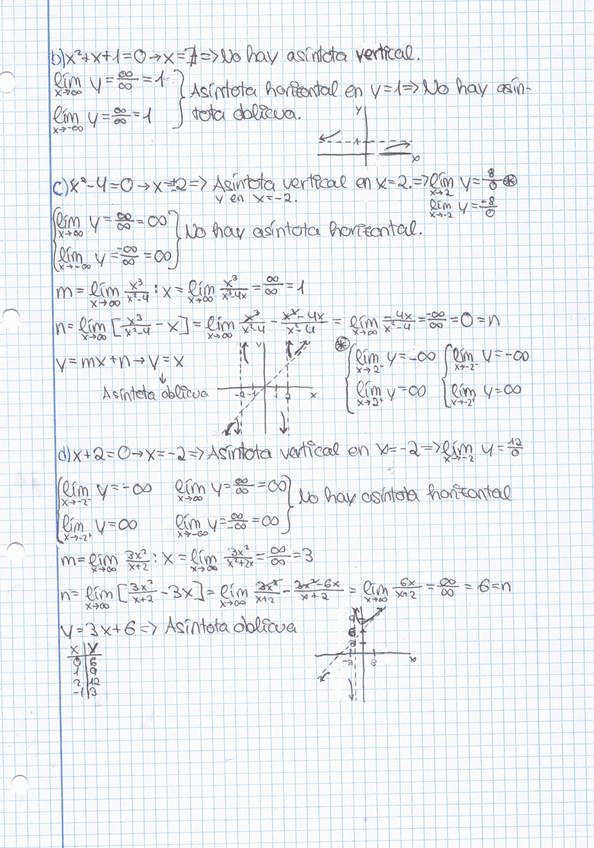 b) x²+x+1=0→x=∄=>No hay asíntota vertical.
lím x→∞ y=∞/∞=1 } Asíntota horizontal en y=1=>No hay asín-
lím x→-∞ y=∞/∞=1 } tota oblicua.
y
1
x
c) x²-4=0→x=±2=>Asíntota vertical en x=2.=>lím x→2 y=8/0 ⊛
y en x=-2. lím x→-2 y=-8/0
{lím x→∞ y=∞/∞=∞ } No hay asíntota horizontal.
{lím x→-∞ y=-∞/∞=∞ }
m=lím x→∞ x³/x²-4 : x=lím x→∞ x³/x³-4x=∞/∞=1
n=lím x→∞ [x³/x²-4 - x]=lím x→∞ x³/x²-4 - x³-4x/x²-4 = lím x→∞ -4x/x²-4=-∞/∞=0=n
y=mx+n→y=x
Asíntota oblicua
y
-2 -1 1 2 x
⊛ {lím x→2⁻ y=-∞ {lím x→-2⁻ y=-∞
{lím x→2⁺ y=∞ {lím x→-2⁺ y=∞
d) x+2=0→x=-2=>Asíntota vertical en x=-2=>lím x→-2 y=12/0
{lím x→-2⁻ y=-∞ lím x→∞ y=∞/∞=∞ } No hay asíntota horizontal
{lím x→-2⁺ y=∞ lím x→-∞ y=∞/-∞=∞ }
m=lím x→∞ 3x²/x+2 : x=lím x→∞ 3x²/x²+2x=∞/∞=3
n=lím x→∞ [3x²/x+2 - 3x]=lím x→∞ 3x²/x+2 - 3x²-6x/x+2 = lím x→∞ 6x/x+2=∞/∞=6=n
y=3x+6=>Asíntota oblicua
x y
0 6
1 9
2 12
-1 3
y
9
6
3
-3 3 x